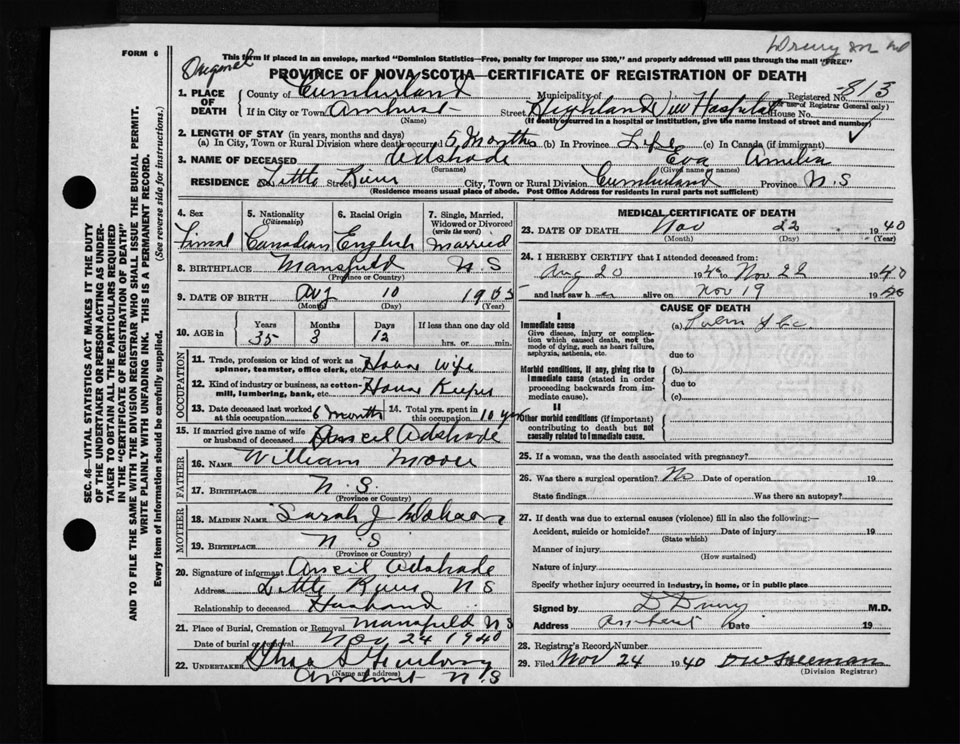 FORM 6
Drury M D
Original
This form if placed in an envelope, marked "Dominion Statistics—Free, penalty for improper use $300," and properly addressed will pass through the mail "FREE"
PROVINCE OF NOVA SCOTIA—CERTIFICATE OF REGISTRATION OF DEATH
1. PLACE OF DEATH County of Cumberland Municipality of Registered No. 813
(For use of Registrar General only)
If in City or Town Amherst Street Highland View Hospital House No.
(Name) (If death occurred in a hospital or institution, give the name instead of street and number)
2. LENGTH OF STAY (in years, months and days)
(a) In City, Town or Rural Division where death occurred 5 Months (b) In Province Life (c) In Canada (if immigrant)
3. NAME OF DECEASED Adshade Eva Amilia
(Surname) (Given name or names)
RESIDENCE No. Little Street River City, Town or Rural Division Cumberland Province N.S
(Residence means usual place of abode. Post Office Address for residents in rural parts not sufficient)
4. Sex 5. Nationality (Citizenship) 6. Racial Origin 7. Single, Married, Widowed or Divorced (write the word)
Fimal Canadian English Married
8. BIRTHPLACE Mansfield N.S
(Province or Country)
9. DATE OF BIRTH Aug 10 1905
(Month) (Day) (Year)
10. AGE in Years Months Days If less than one day old
35 3 12 hrs. or min.
OCCUPATION
11. Trade, profession or kind of work as spinner, teamster, office clerk, etc. House Wife
12. Kind of industry or business, as cotton-mill, lumbering, bank, etc. House Keeper
13. Date deceased last worked at this occupation 6 months 14. Total yrs. spent in this occupation 10 yrs
15. If married give name of wife or husband of deceased Anseil Adshade
FATHER
16. NAME William Moore
17. BIRTHPLACE N.S.
(Province or Country)
MOTHER
18. MAIDEN NAME Sarah J
19. BIRTHPLACE N S
(Province or Country)
20. Signature of informant Anseil Adshade
Address Little River N S
Relationship to deceased Husband
21. Place of Burial, Cremation or Removal Mansfield N S
Date of burial or removal Nov 24 1940
22. UNDERTAKER
(Name and address)
Amherst N.S
MEDICAL CERTIFICATE OF DEATH
23. DATE OF DEATH Nov 22 1940
(Month) (Day) (Year)
24. I HEREBY CERTIFY that I attended deceased from:
Aug 20 1940 to Nov 22 1940
and last saw her alive on Nov 19 1940
CAUSE OF DEATH
I
Immediate cause
Give disease, injury or complication which caused death, not the mode of dying, such as heart failure, asphyxia, asthenia, etc.
(a)
due to
Morbid conditions, if any, giving rise to immediate cause (stated in order proceeding backwards from immediate cause).
(b)
due to
(c)
II
Other morbid conditions (if important) contributing to death but not causally related to immediate cause.
25. If a woman, was the death associated with pregnancy?
26. Was there a surgical operation? No Date of operation 19
State findings Was there an autopsy?
27. If death was due to external causes (violence) fill in also the following:—
Accident, suicide or homicide? Date of injury 19
(State which)
Manner of injury
(How sustained)
Nature of injury
Specify whether injury occurred in industry, in home, or in public place
Signed by D Drury M.D.
Address Amherst Date 19
28. Registrar's Record Number
29. Filed Nov 24 1940
(Division Registrar)
SEC. 46—VITAL STATISTICS ACT MAKES IT THE DUTY
OF THE UNDERTAKER OR PERSON ACTING AS UNDER-
TAKER TO OBTAIN ALL THE PARTICULARS REQUIRED
IN THE "CERTIFICATE OF REGISTRATION OF DEATH"
AND TO FILE THE SAME WITH THE DIVISION REGISTRAR WHO SHALL ISSUE THE BURIAL PERMIT.
WRITE PLAINLY WITH UNFADING INK. THIS IS A PERMANENT RECORD.
Every item of information should be carefully supplied. (See reverse side for instructions.)